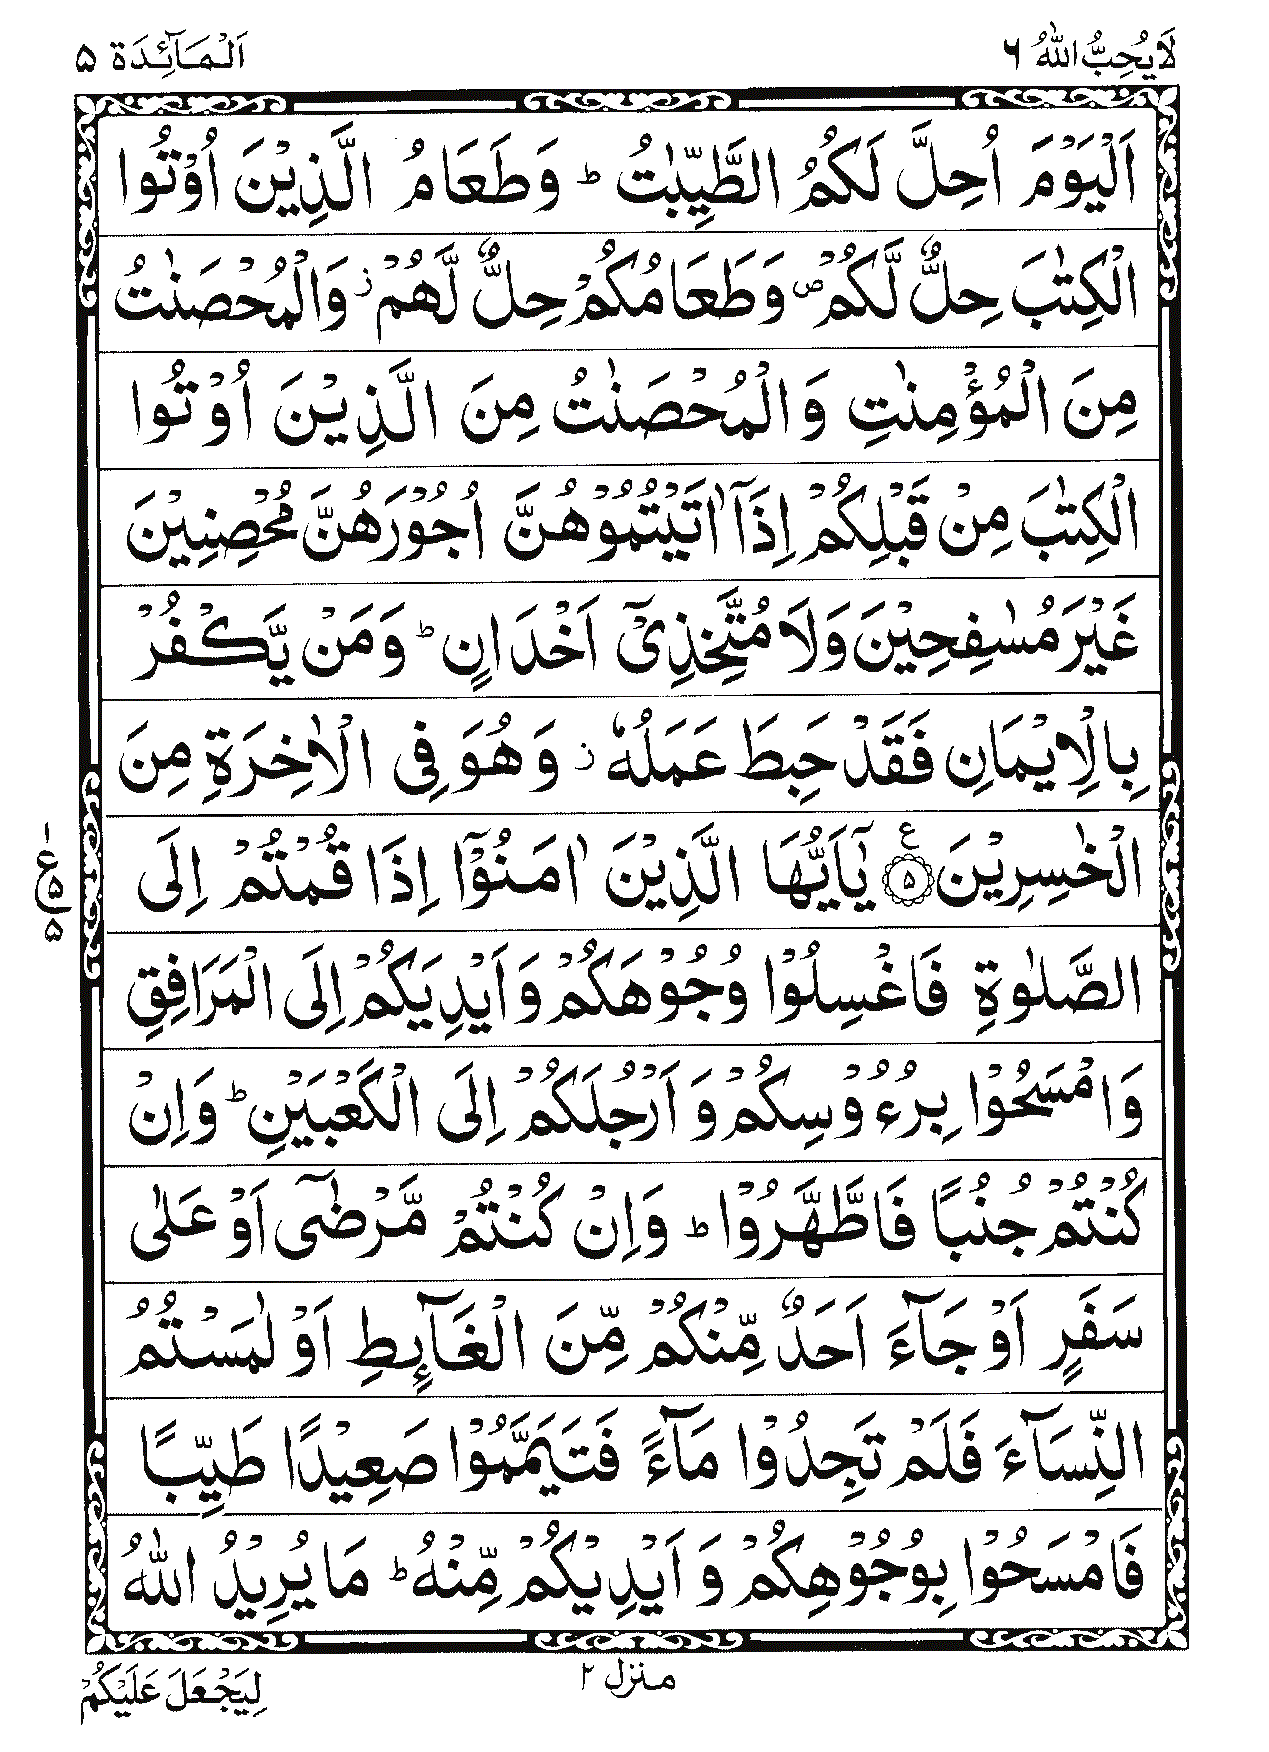 لَا يُحِبُّ اللّٰهُ ٦
اَلْمَآئِدَة ٥
اَلْيَوْمَ اُحِلَّ لَكُمُ الطَّيِّبٰتُ ؕ وَطَعَامُ الَّذِيْنَ اُوْتُوا
الْكِتٰبَ حِلٌّ لَّكُمْ ۪ وَطَعَامُكُمْ حِلٌّ لَّهُمْ ؗ وَالْمُحْصَنٰتُ
مِنَ الْمُؤْمِنٰتِ وَالْمُحْصَنٰتُ مِنَ الَّذِيْنَ اُوْتُوا
الْكِتٰبَ مِنْ قَبْلِكُمْ اِذَاۤ اٰتَيْتُمُوْهُنَّ اُجُوْرَهُنَّ مُحْصِنِيْنَ
غَيْرَ مُسٰفِحِيْنَ وَلَا مُتَّخِذِيْۤ اَخْدَانٍ ؕ وَمَنْ يَّكْفُرْ
بِالْاِيْمَانِ فَقَدْ حَبِطَ عَمَلُهٗ ؗ وَهُوَ فِي الْاٰخِرَةِ مِنَ
الْخٰسِرِيْنَ ۝٥ ع يٰۤاَيُّهَا الَّذِيْنَ اٰمَنُوْۤا اِذَا قُمْتُمْ اِلَى
١ ع ٥ ٥
الصَّلٰوةِ فَاغْسِلُوْا وُجُوْهَكُمْ وَاَيْدِيَكُمْ اِلَى الْمَرَافِقِ
وَامْسَحُوْا بِرُءُوْسِكُمْ وَاَرْجُلَكُمْ اِلَى الْكَعْبَيْنِ ؕ وَاِنْ
كُنْتُمْ جُنُبًا فَاطَّهَّرُوْا ؕ وَاِنْ كُنْتُمْ مَّرْضٰۤى اَوْ عَلٰى
سَفَرٍ اَوْ جَآءَ اَحَدٌ مِّنْكُمْ مِّنَ الْغَآىِٕطِ اَوْ لٰمَسْتُمُ
النِّسَآءَ فَلَمْ تَجِدُوْا مَآءً فَتَيَمَّمُوْا صَعِيْدًا طَيِّبًا
فَامْسَحُوْا بِوُجُوْهِكُمْ وَاَيْدِيْكُمْ مِّنْهُ ؕ مَا يُرِيْدُ اللّٰهُ
منزل ٢
لِيَجْعَلَ عَلَيْكُمْ